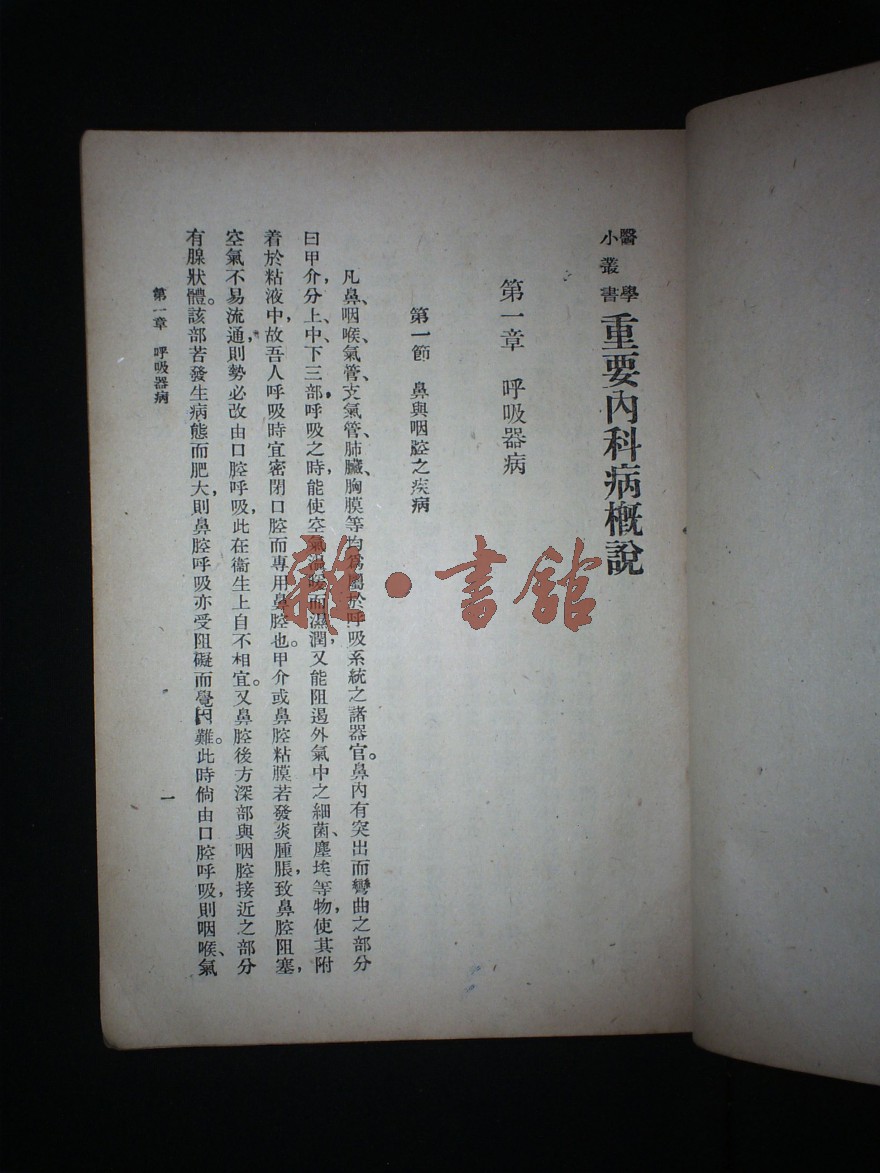 醫學小叢書
重要內科病概說
第一章 呼吸器病
第一節 鼻與咽腔之疾病
凡鼻、咽喉、氣管、支氣管、肺臟、胸膜等均爲屬於呼吸系統之諸器官。鼻內有突出而彎曲之部分
曰甲介，分上、中、下三部，呼吸之時，能使空氣溫暖而濕潤，又能阻遏外氣中之細菌、塵埃等物，使其附
着於粘液中，故吾人呼吸時宜密閉口腔而專用鼻腔也。甲介或鼻腔粘膜若發炎腫脹，致鼻腔阻塞，
空氣不易流通，則勢必改由口腔呼吸，此在衞生上自不相宜。又鼻腔後方深部與咽腔接近之部分
有腺狀體。該部若發生病態而肥大，則鼻腔呼吸亦受阻礙而覺困難。此時倘由口腔呼吸，則咽喉、氣
第一章 呼吸器病
一
雜·書館